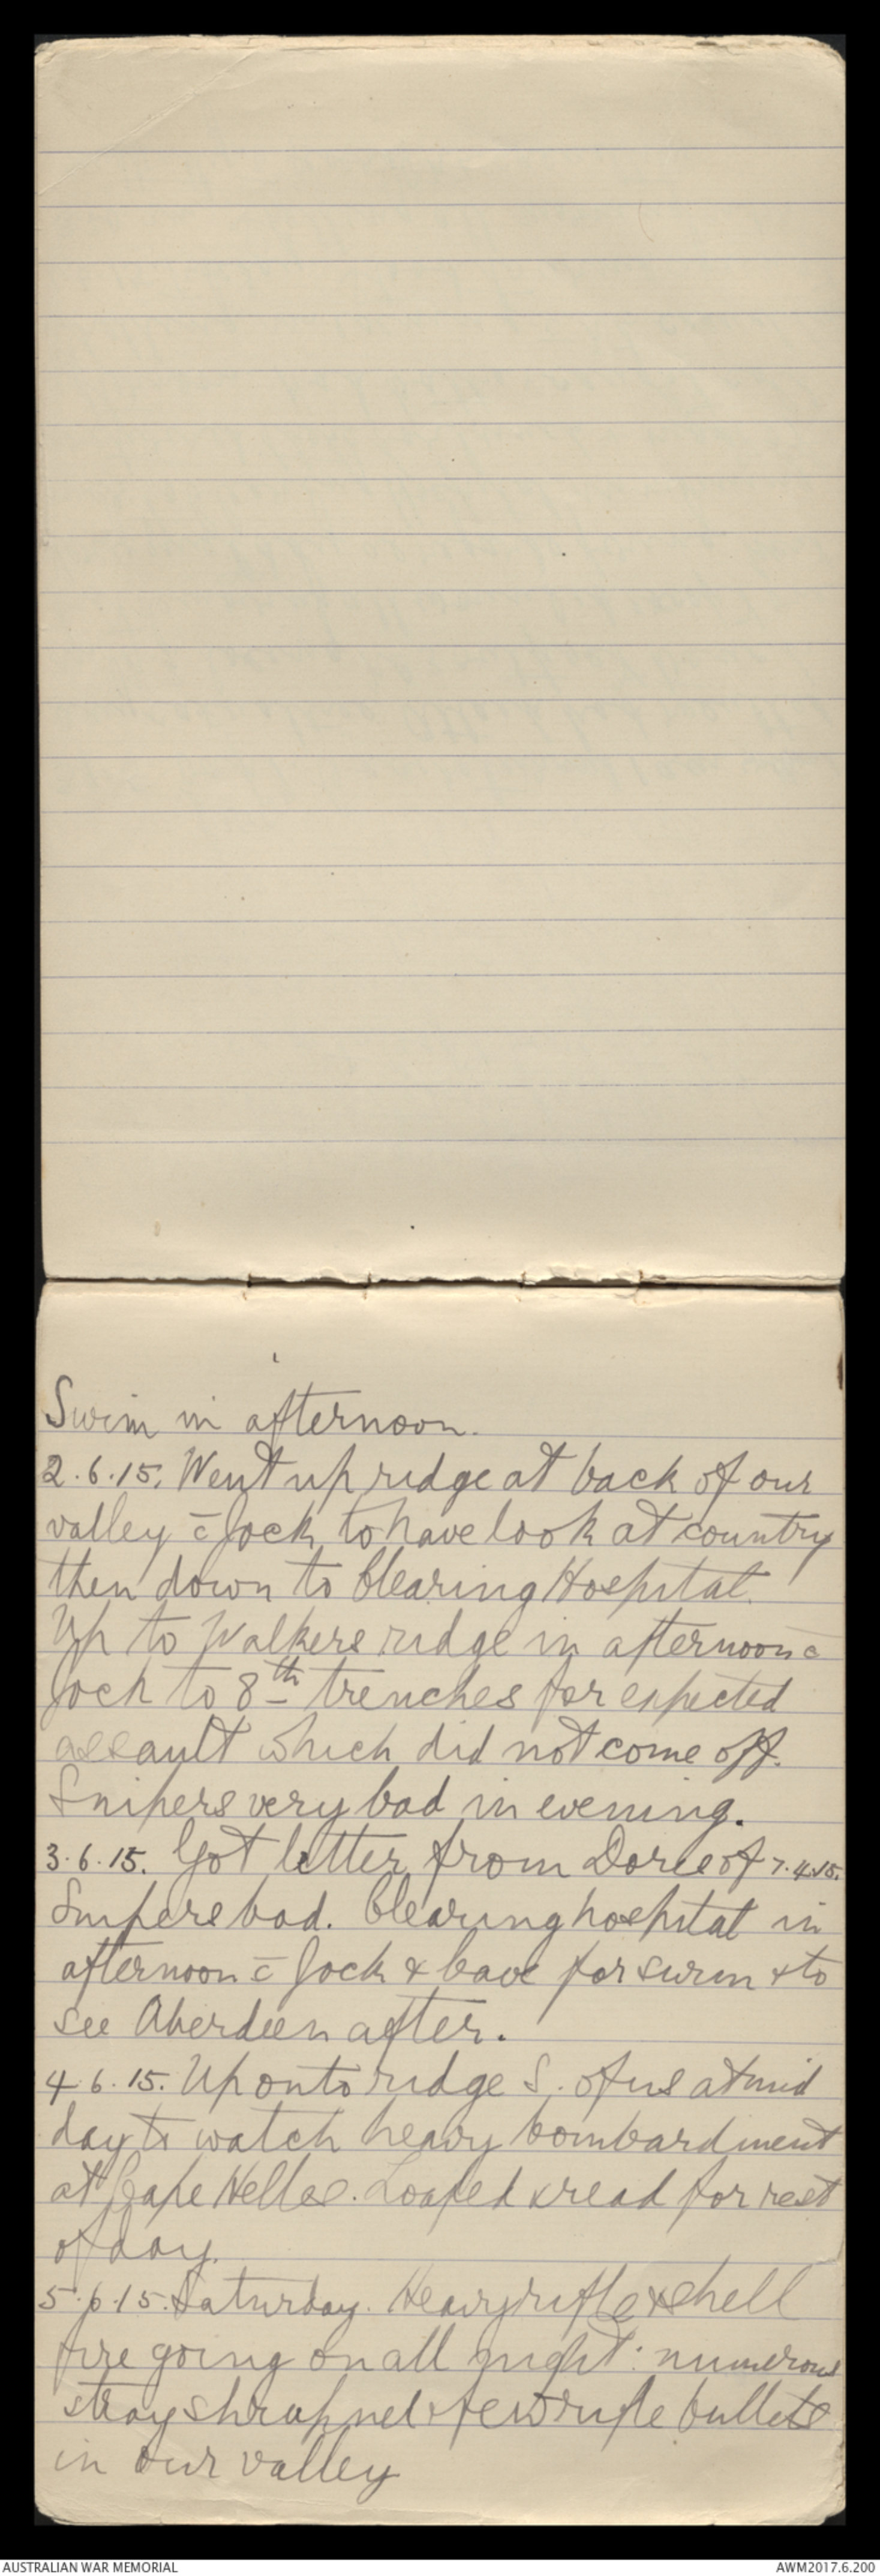 Swim in afternoon.
2.6.15. Went up ridge at back of our
valley c̄ Jock to have look at country
then down to Clearing Hospital.
Up to Walkers ridge in afternoon c̄
Jock to 8th trenches for expected
assault which did not come off.
Snipers very bad in evening.
3.6.15. Got letter from Doree of 7.4.15.
Snipers bad. Clearing hospital in
afternoon c̄ Jock & Cave for swim & to
see Aberdeen after.
4.6.15. Up onto ridge S. of us at mid
day to watch heavy bombardment
at Cape Helles. Loafed & read for rest
of day.
5.6.15. Saturday. Heavy rifle & shell
fire going on all night: numerous
stray shrapnel & few rifle bullets
in our valley
AUSTRALIAN WAR MEMORIAL
AWM2017.6.200